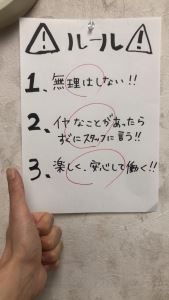 ⚠ルール⚠
1、無理はしない!!
2、イヤなことがあったら
すぐにスタッフに言う!!
3、楽しく、安心して働く!!